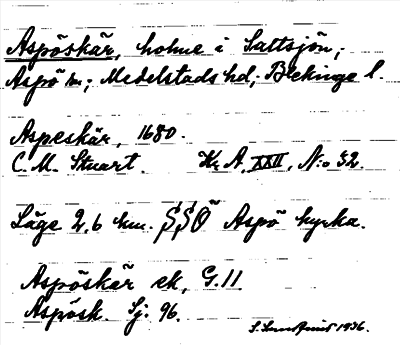 Aspöskär, holme i Saltsjön,
Aspö sn; Medelstads hd, Blekinge l.
Aspeskär, 1680.
C. M. Stuart. Kr. A, XXII, N:o 32.
Läge 2,6 km. SSÖ Aspö kyrka.
Aspöskär ek, G. 11.
Aspösk. Sj. 96.
1936.